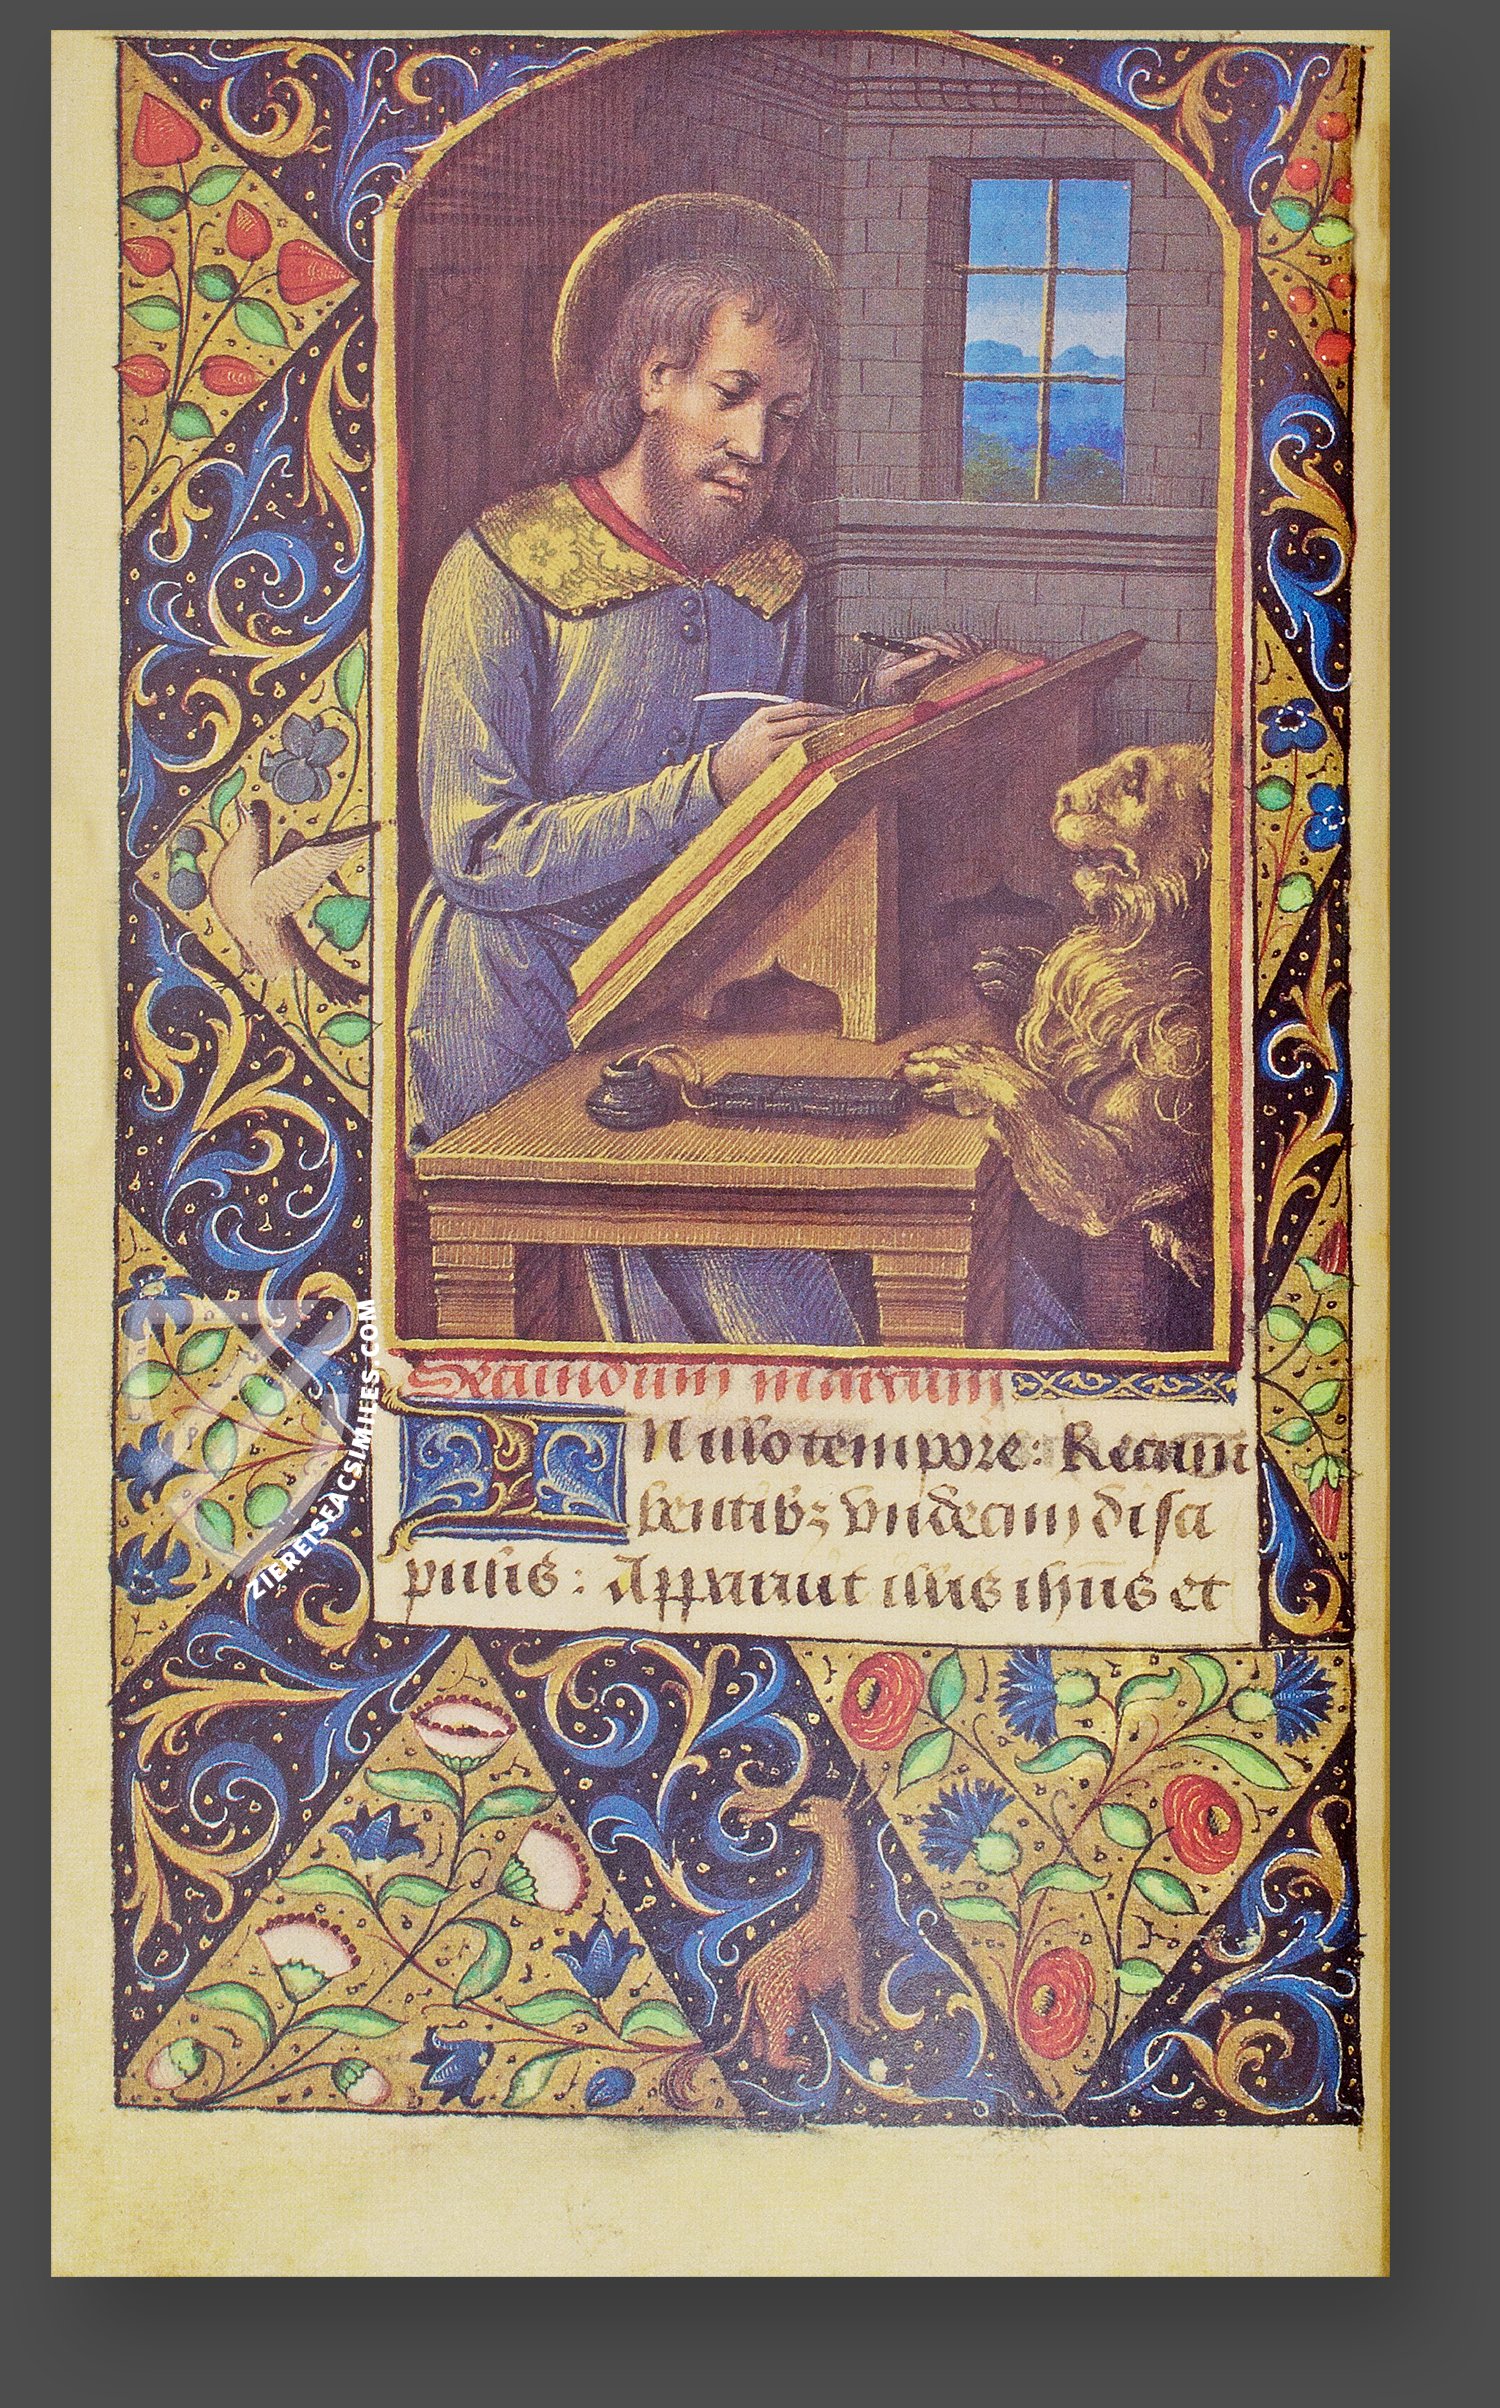 Secundum marcum
IN illo tempore: Recum
bentibꝫ vndecim disci
pulis: Apparuit illis ihūs et
ZIEREISFACSIMILES.COM